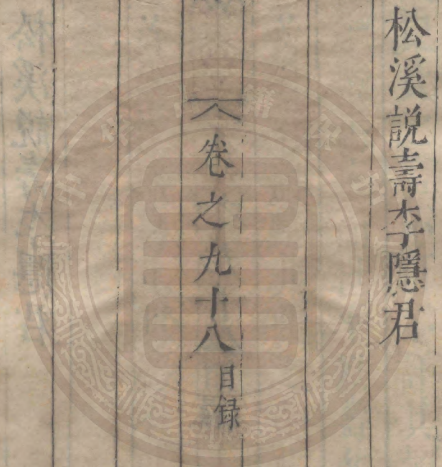 松溪說壽李隱君
卷之九十八目録